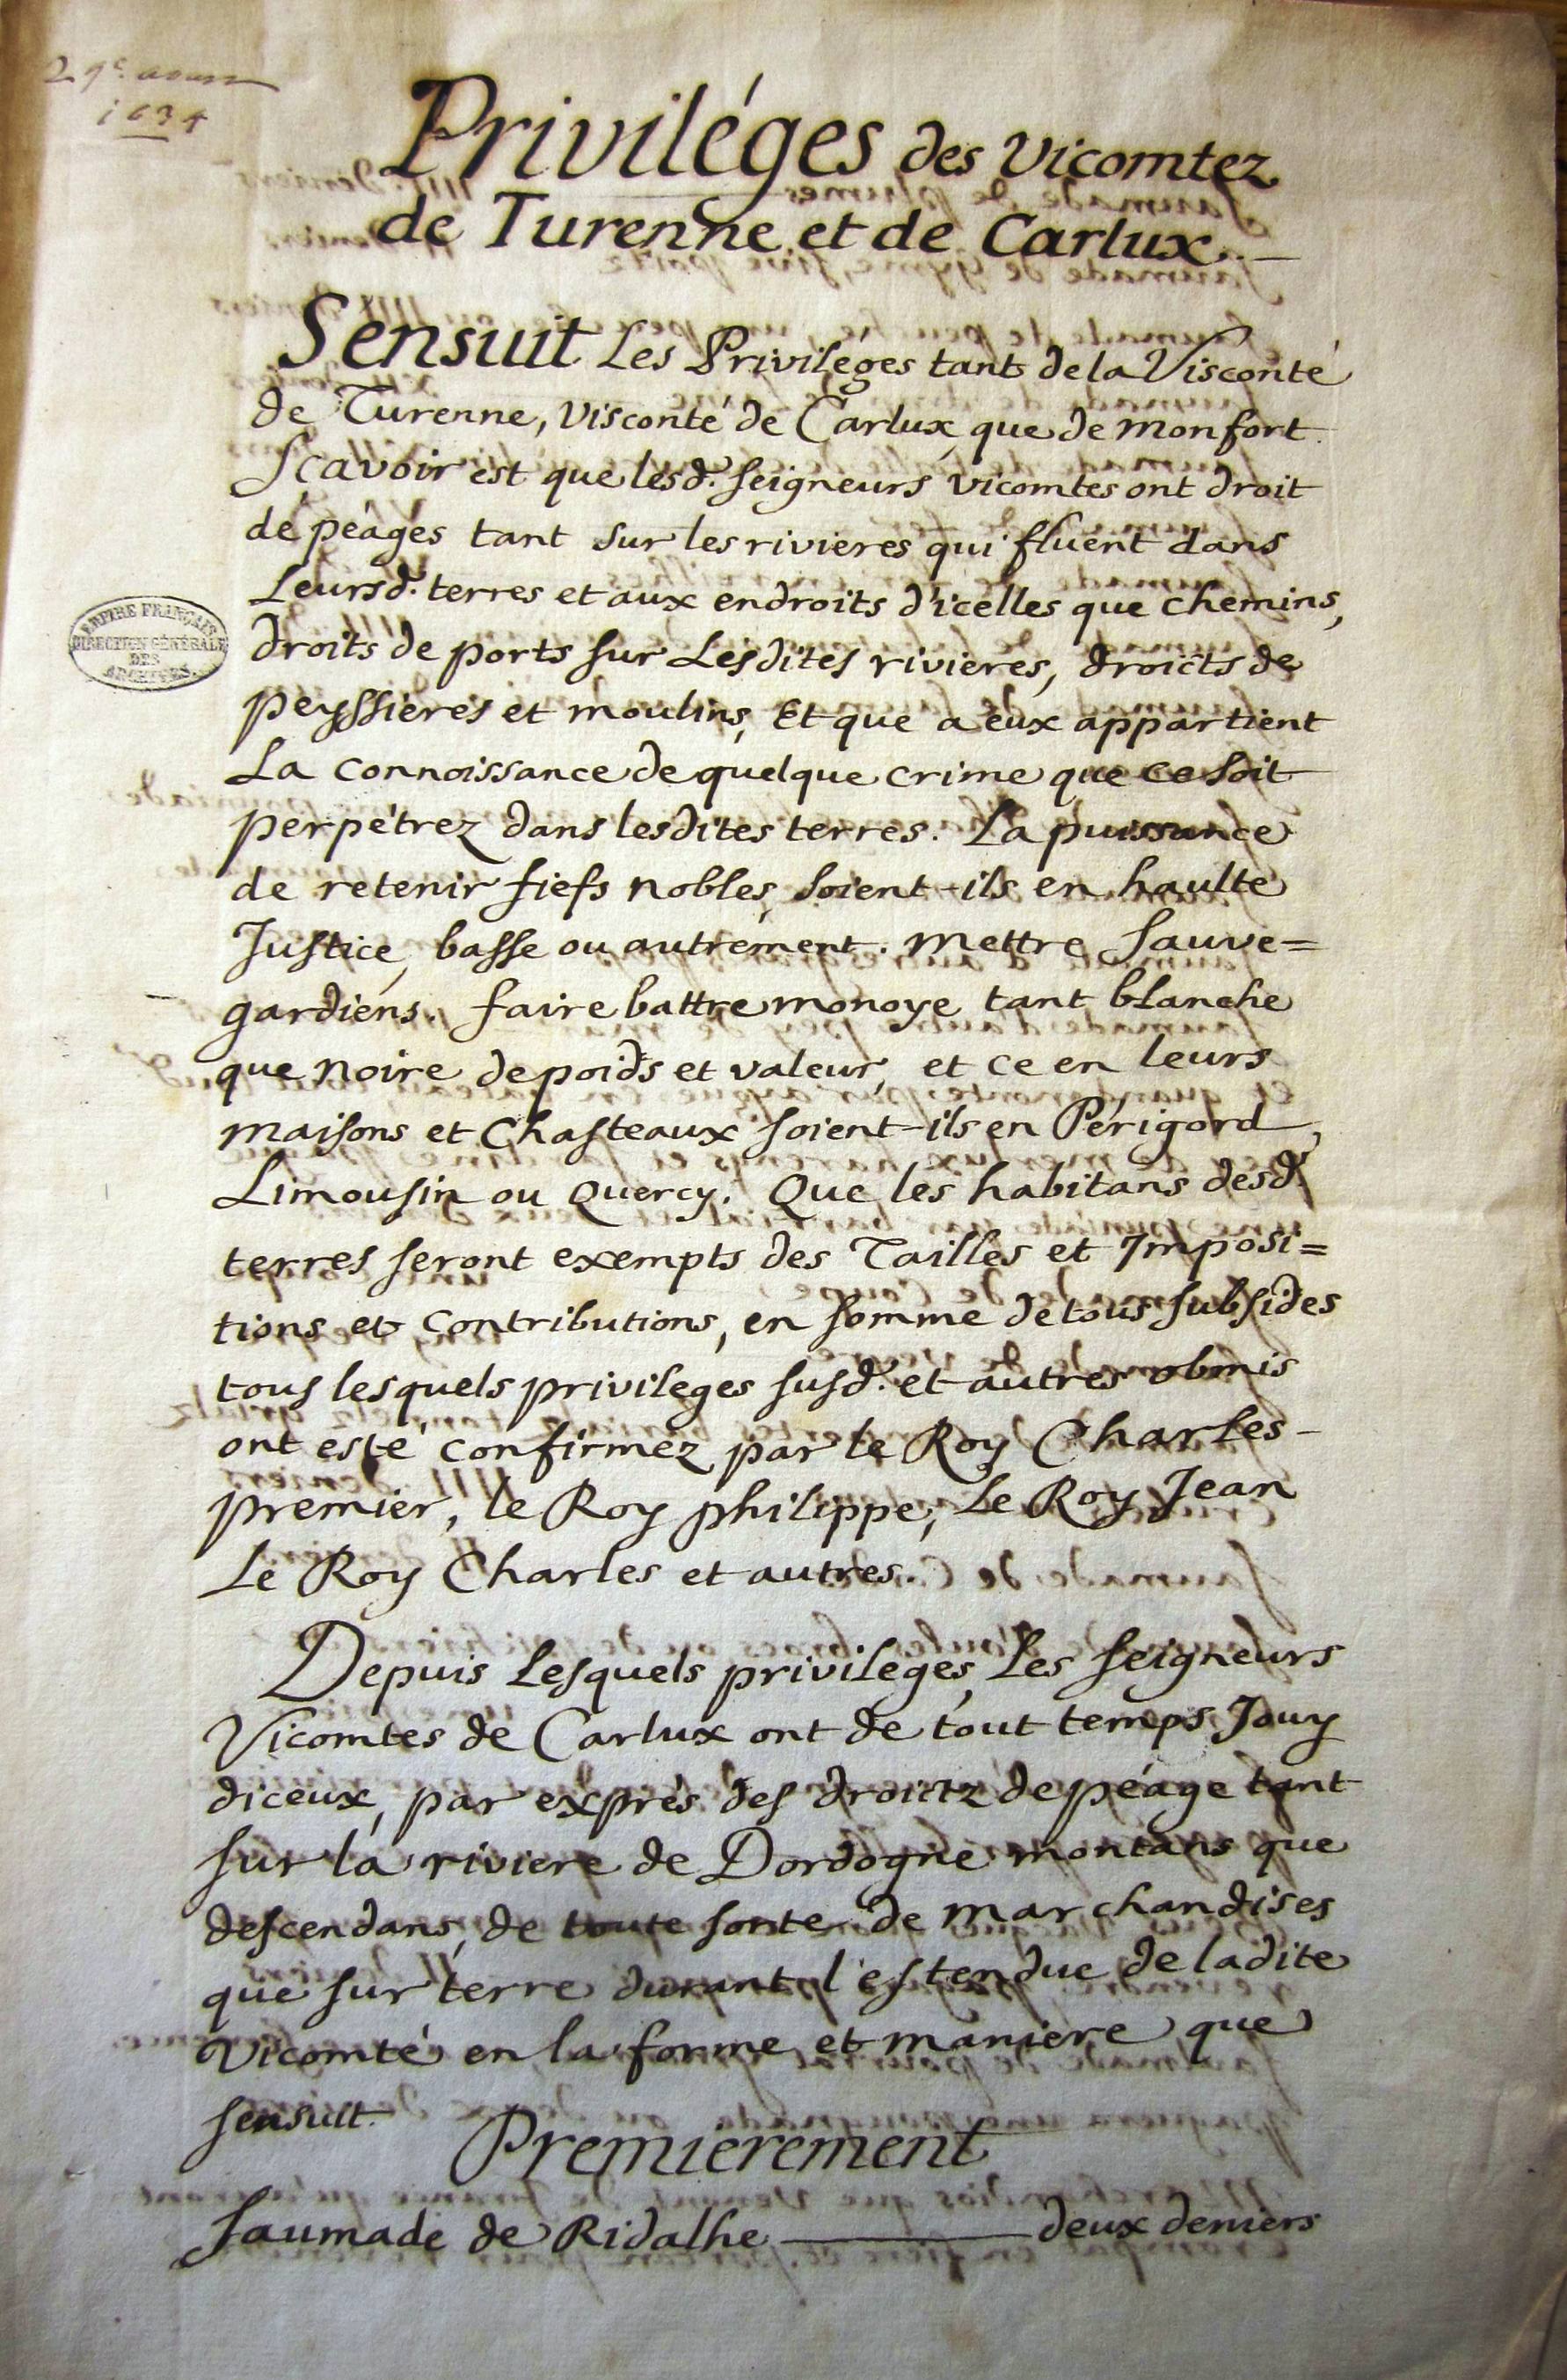 1634
Priviléges des Vicomtez
de Turenne et de Carlux.
Sensuit Les Priviléges tant de la Visconté
de Turenne, Visconté de Carlux, que de monfort.
Scavoir est que lesd. seigneurs vicomtes ont droit
de péages tant sur les rivieres qui fluent dans
Leursd. terres et aux endroits d'icelles que chemins,
EMPIRE FRANÇAIS
DIRECTION GÉNÉRALE
DES
ARCHIVES
droits de ports sur Lesdites rivieres, droicts de
peyssieres et moulins, Et que a eux appartient
La connoissance de quelque crime que ce soit
perpétrez dans lesdites terres. La puissance
de retenir fiefs nobles, soient-ils en haulte
Justice, basse ou autrement. mettre sauve=
gardiens. faire battre monoye tant blanche
que noire de poids et valeur, et ce en leurs
maisons et Chasteaux soient-ils en Périgord,
Limousin ou Quercy. Que les habitans desd.
terres seront exempts des Tailles et Imposi=
tions et contributions, en somme de tous subsides
tous lesquels privileges susd. et autres obmis
ont esté confirmez par le Roy Charles
premier, le Roy philippe, Le Roy Jean
Le Roy Charles et autres.
Depuis Lesquels privileges, Les seigneurs
Vicomtes de Carlux ont de tout temps Jouy
diceux, par exprés des droictz de péage tant
sur la riviere de Dordogne montans que
descendans, de toute sorte de marchandises
que sur terre durant l'estendue de ladite
Vicomté en la forme et maniere que
sensuit.
Premierement
Saumade de Ridalhe deux deniers